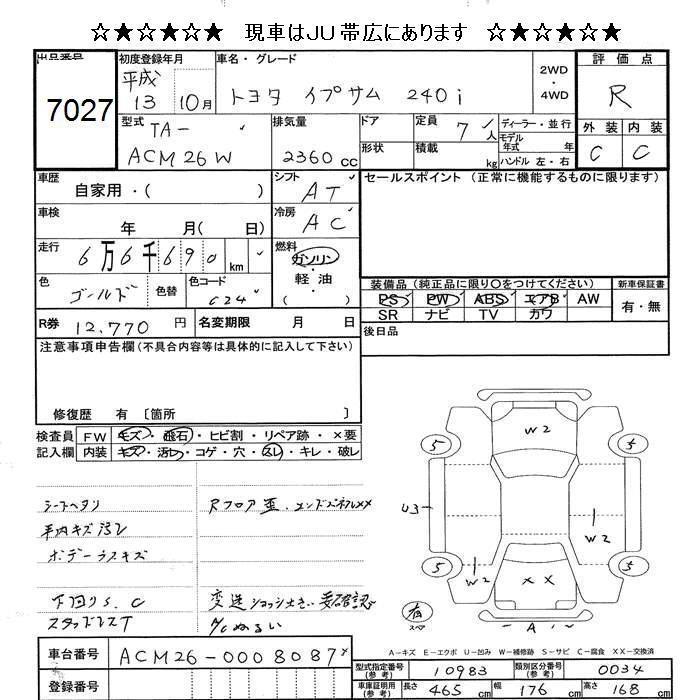 ☆★☆★☆★ 現車はJU帯広にあります ☆★☆★☆★
出品番号
7027
初度登録年月
平成
13 10月
車名・グレード
トヨタ イプサム 240i
2WD
・
4WD
評価点
R
外装 内装
C C
型式
TA-
ACM26W
排気量
2360 cc
ドア
形状
定員
7 人
積載
kg
ディーラー・並行
モデル
年式 年
ハンドル 左・右
車歴
自家用・( )
シフト
AT
車検
年 月( 日)
冷房
AC
走行
6万6千690 km
燃料
ガソリン
・
軽油
( )
色
ゴールド
色替
色コード
C24
R券 12,770 円
名変期限 月 日
セールスポイント (正常に機能するものに限ります)
装備品(純正品に限り○をつけてください)
新車保証書
PS PW ABS エアB AW
SR ナビ TV カワ
有・無
後日品
注意事項申告欄(不具合内容等は具体的に記入して下さい)
修復歴 有 〔箇所 〕
検査員
記入欄
FW キズ・飛石・ヒビ割・リペア跡・×要
内装 キズ・汚れ・コゲ・穴・スレ・キレ・破レ
シートヘタリ
車内キズ汚れ
ボデーラスキズ
下回りS.C
スタッドレスT
Rフロア歪
変速ショック大きい 要確認
A/Cぬるい
W2
5
5
U3
W2
5
5
W2
××
A
有
スペア
A-キズ E-エクボ U-凹み W-補修跡 S-サビ C-腐食 XX-交換済
車台番号 ACM26-0008087
登録番号
型式指定番号
(参考)
10983
類別区分番号
(参考)
0034
車庫証明用
(参考)
長さ 465 cm 幅 176 cm 高さ 168 cm